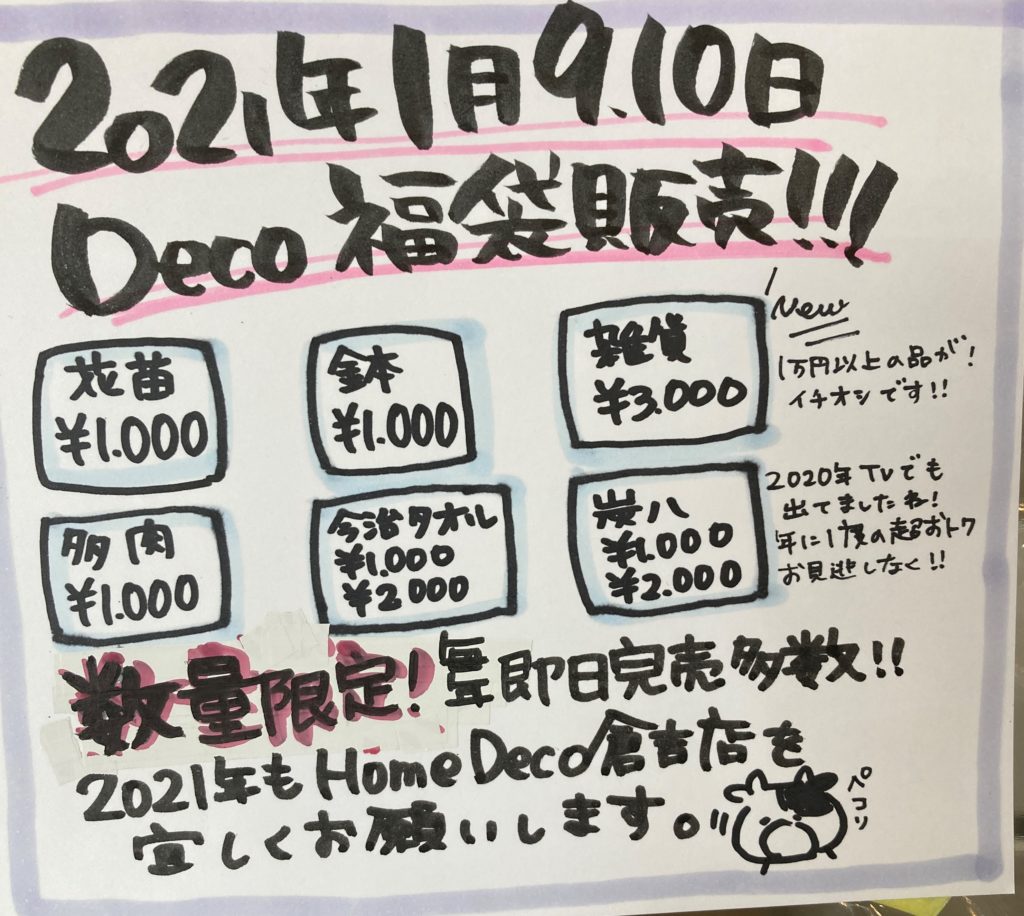 2021年1月9.10日
Deco福袋販売!!!
花苗
¥1.000
鉢
¥1.000
雑貨
¥3.000
New
1万円以上の品が!
イチオシです!!
多肉
¥1.000
今治タオル
¥1.000
¥2000
炭八
¥1.000
¥2.000
2020年TVでも
出てましたね!
年に1度の超おトク
お見逃しなく!!
数量限定!毎年即日完売多数!!
2021年もHomeDeco倉吉店を
宜しくお願いします。
ペコリ